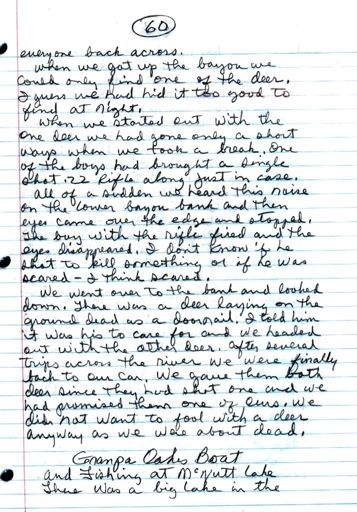 60
everyone back across.
When we got up the bayou we
could only find one of the deer.
I guess we had hid it too good to
find at night.
When we started out with the
one deer we had gone only a short
ways when we took a break. One
of the boys had brought a single
shot .22 rifle along just in case.
All of a sudden we heard this noise
on the lower bayou bank and then
eyes came over the edge and stopped.
The boy with the rifle fired and the
eyes disappeared. I don't know if he
shot to kill something or if he was
scared - I think scared.
We went over to the bank and looked
down. There was a deer laying on the
ground dead as a doornail. I told him
it was his to care for and we headed
out with the other deer. After several
trips across the river we were finally
back to our car. We gave them both
deer since they had shot one and we
had promised them one of ours. We
did not want to fool with a deer
anyway as we were about dead.
Grampa Oaks Boat
and Fishing at McNutt Lake
There was a big lake in the